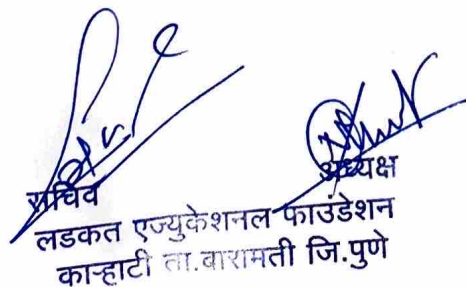 सचिव अध्यक्ष
लडकत एज्युकेशनल फाउंडेशन
काऱ्हाटी ता.बारामती जि.पुणे